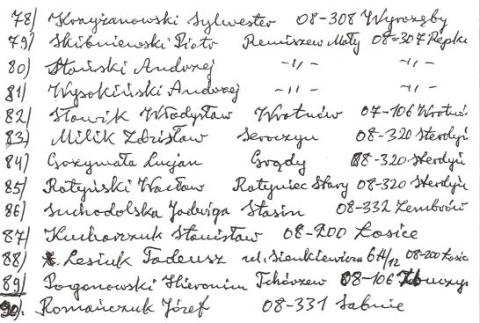 78/ Krzyżanowski Sylwester 08-308 Wyrozęby
79/ Skibniewski Piotr Remiszew Mały 08-307 Repki
80/ Stański Andrzej -"- -"-
81/ Wysokiński Andrzej -"- -"-
82/ Słowik Władysław Wrotnów 07-106 Wrotnów
83/ Milik Zdzisław Seroczyn 08-320 Sterdyń
84/ Grzymała Lucjan Grądy 08-320 Sterdyń
85/ Ratyński Wacław Ratyniec Stary 08-320 Sterdyń
86/ Suchodolska Jadwiga Stasin 08-332 Zembrów
87/ Kucharczuk Stanisław 08-200 Łosice
88/ Lesiuk Tadeusz ul. Sienkiewicza 6A/12 08-200 Łosice
89/ Hieronim Tchórzew 08-106
90. Romańczuk Józef 08-331 Sabnie